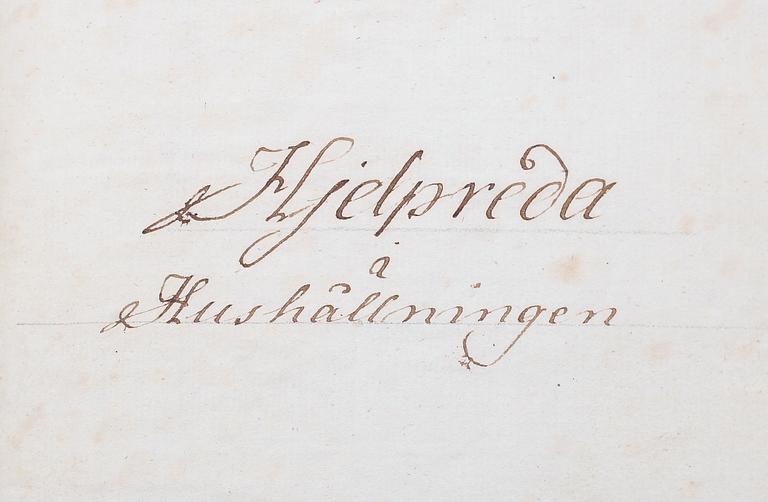 Hjelpreda
i
Hushållningen